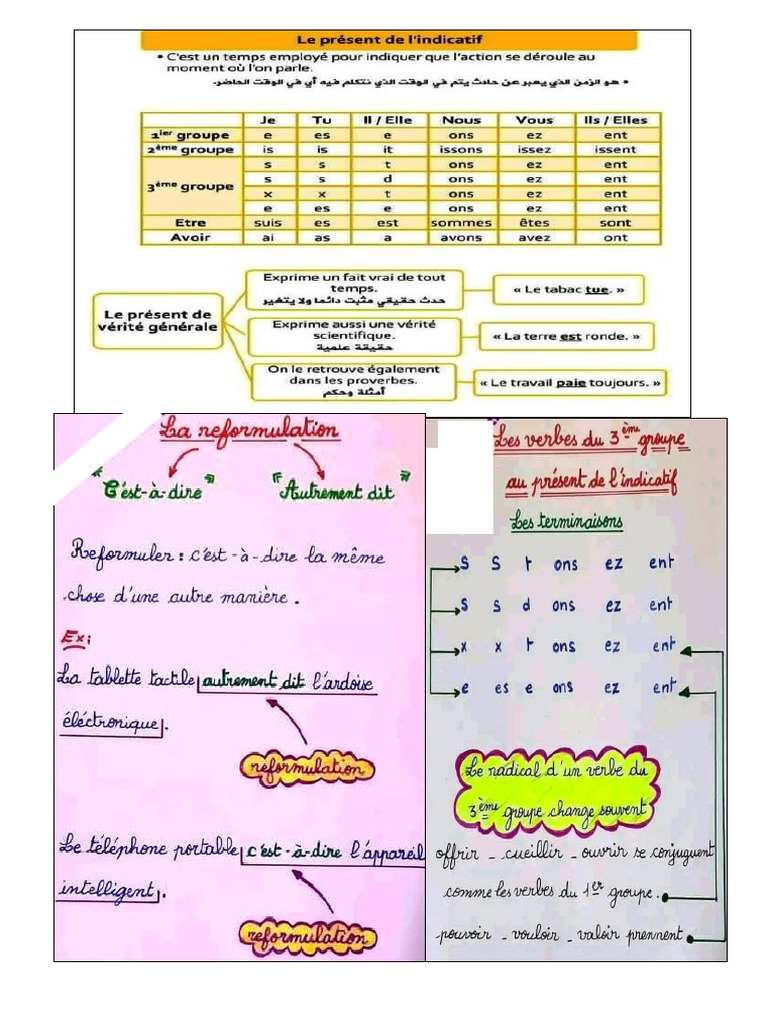 Le présent de l'indicatif
• C'est un temps employé pour indiquer que l'action se déroule au
moment où l'on parle.
• هو الزمن الذي يعبر عن حادث يتم في الوقت الذي نتكلم فيه أي في الوقت الحاضر.
Je Tu Il / Elle Nous Vous Ils / Elles
1ier groupe e es e ons ez ent
2ème groupe is is it issons issez issent
3ème groupe
s s t ons ez ent
s s d ons ez ent
x x t ons ez ent
e es e ons ez ent
Etre suis es est sommes êtes sont
Avoir ai as a avons avez ont
Le présent de
vérité générale
Exprime un fait vrai de tout
temps.
حدث حقيقي مثبت دائما ولا يتغير
« Le tabac tue. »
Exprime aussi une vérité
scientifique.
حقيقة علمية
« La terre est ronde. »
On le retrouve également
dans les proverbes.
أمثلة وحكم
« Le travail paie toujours. »
La reformulation
"C'est-à-dire" "Autrement dit"
Reformuler : c'est-à-dire la même
chose d'une autre manière.
Ex:
La tablette tactile autrement dit l'ardoise
éléctronique.
reformulation
Le téléphone portable c'est-à-dire l'appareil
intelligent.
reformulation
Les verbes du 3ème groupe
au présent de l'indicatif
Les terminaisons
s s t ons ez ent
s s d ons ez ent
x x t ons ez ent
e es e ons ez ent
Le radical d'un verbe du
3ème groupe change souvent
offrir - cueillir - ouvrir se conjuguent
comme les verbes du 1er groupe.
pouvoir - vouloir - valoir prennent